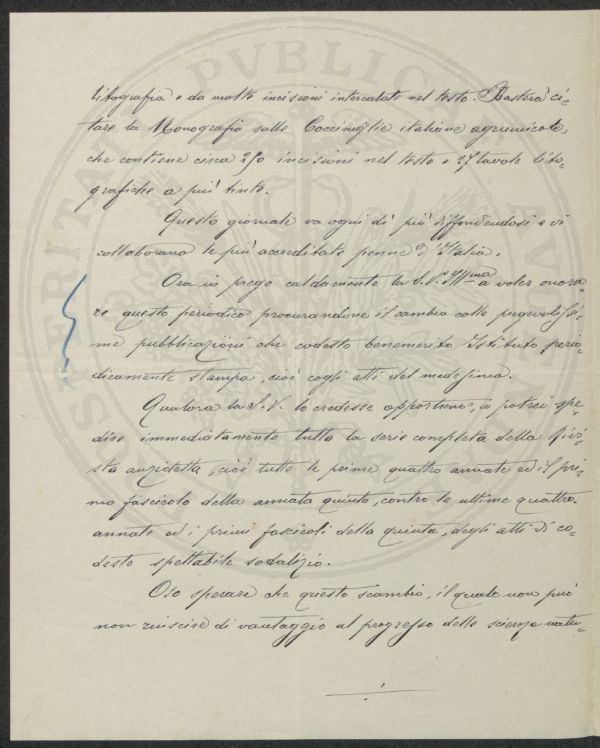 litografia e da molte incisioni intercalate nel testo. Basterà ci-
tare la Monografia sulle Cocciniglie italiane agrumicole,
che contiene circa 250 incisioni nel testo e 27 tavole lito-
grafiche a più tinte.
Questo giornale va ogni dì più diffondendosi e vi
collaborano le più accreditate penne d'Italia.
Ora io prego caldamente la S.V. Illma a voler onora-
re questo periodico procurandone il cambio colle pregevolissi-
me pubblicazioni che codesto benemerito Istituto perio-
dicamente stampa, cioè cogli atti del medesimo.
Qualora la S.V. lo credesse opportuno, io potrei spe-
dire immediatamente tutta la serie completa della Rivi-
sta anzidetta, cioè tutte le prime quattro annate ed il pri-
mo fascicolo della annata quinta, contro le ultime quattro
annate ed i primi fascicoli della quinta, degli atti di co-
desto spettabile sodalizio.
Oso sperare che questo scambio, il quale non può
non riuscire di vantaggio al progresso delle scienze natu-
PVBLICA